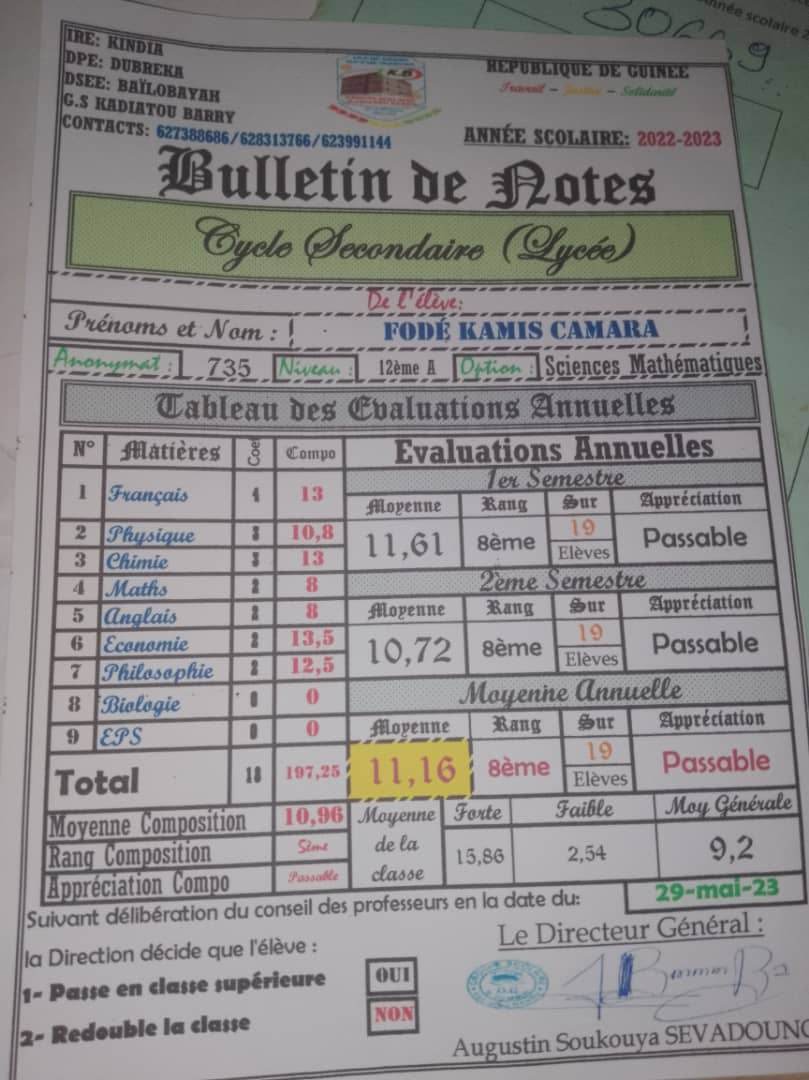 IRE: KINDIA
DPE: DUBREKA
DSEE: BAÏLOBAYAH
G.S KADIATOU BARRY
CONTACTS: 627388686/628313766/623991144
K.B
REPUBLIQUE DE GUINEE
Travail - Justice - Solidarité
nnée scolaire 2
ANNÉE SCOLAIRE: 2022-2023
Bulletin de Notes
Cycle Secondaire (Lycée)
De l'élève:
Prénoms et Nom : FODÉ KAMIS CAMARA
Anonymat : 735 Niveau : 12ème A Option : Sciences Mathématiques
Tableau des Evaluations Annuelles
N° Matières Coef Compo Evaluations Annuelles
1 Français 4 13
2 Physique 3 10,8
3 Chimie 3 13
4 Maths 2 8
5 Anglais 2 8
6 Economie 2 13,5
7 Philosophie 2 12,5
8 Biologie 0 0
9 EPS 0 0
Total 18 197,25
1er Semestre
Moyenne Rang Sur Appréciation
11,61 8ème 19 Elèves Passable
2ème Semestre
Moyenne Rang Sur Appréciation
10,72 8ème 19 Elèves Passable
Moyenne Annuelle
Moyenne Rang Sur Appréciation
11,16 8ème 19 Elèves Passable
Moyenne Composition 10,96
Rang Composition 5ème
Appréciation Compo Passable
Moyenne de la classe
Forte Faible Moy Générale
15,86 2,54 9,2
Suivant délibération du conseil des professeurs en la date du: 29-mai-23
la Direction décide que l'élève :
1- Passe en classe supérieure OUI
2- Redouble la classe NON
Le Directeur Général :
Augustin Soukouya SEVADOUNO